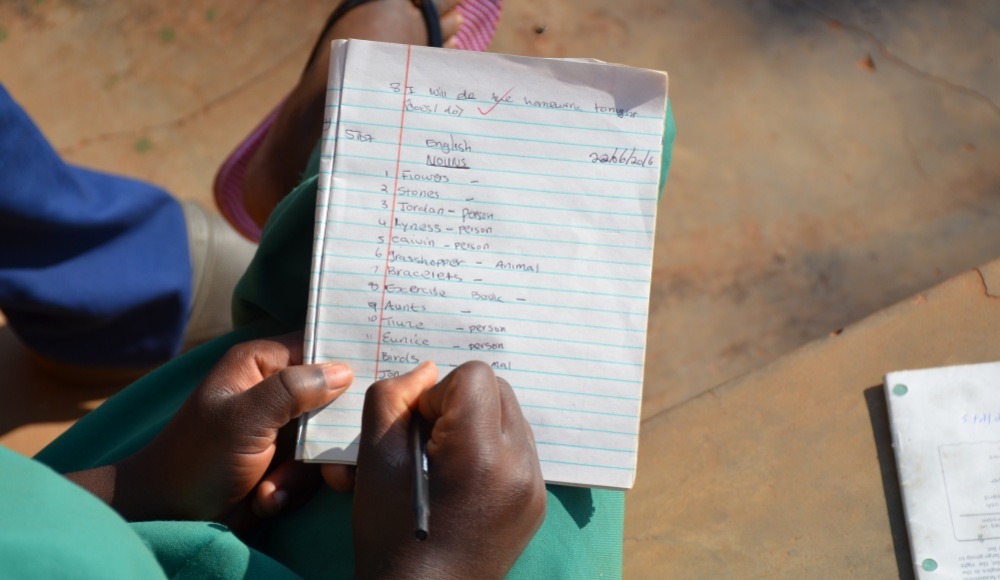 8 I will do the homework tonight
(Does/do)
STD7
English
NOUNS
22/06/2016
1 Flowers -
2 Stones -
3 Jordan - person
4 Lyness - person
5 Calvin - person
6 Grasshopper - Animal
7 Bracelets -
8 Exercise Book -
9 Aunts -
10 Tiuze - person
11 Eunice - person
Birds